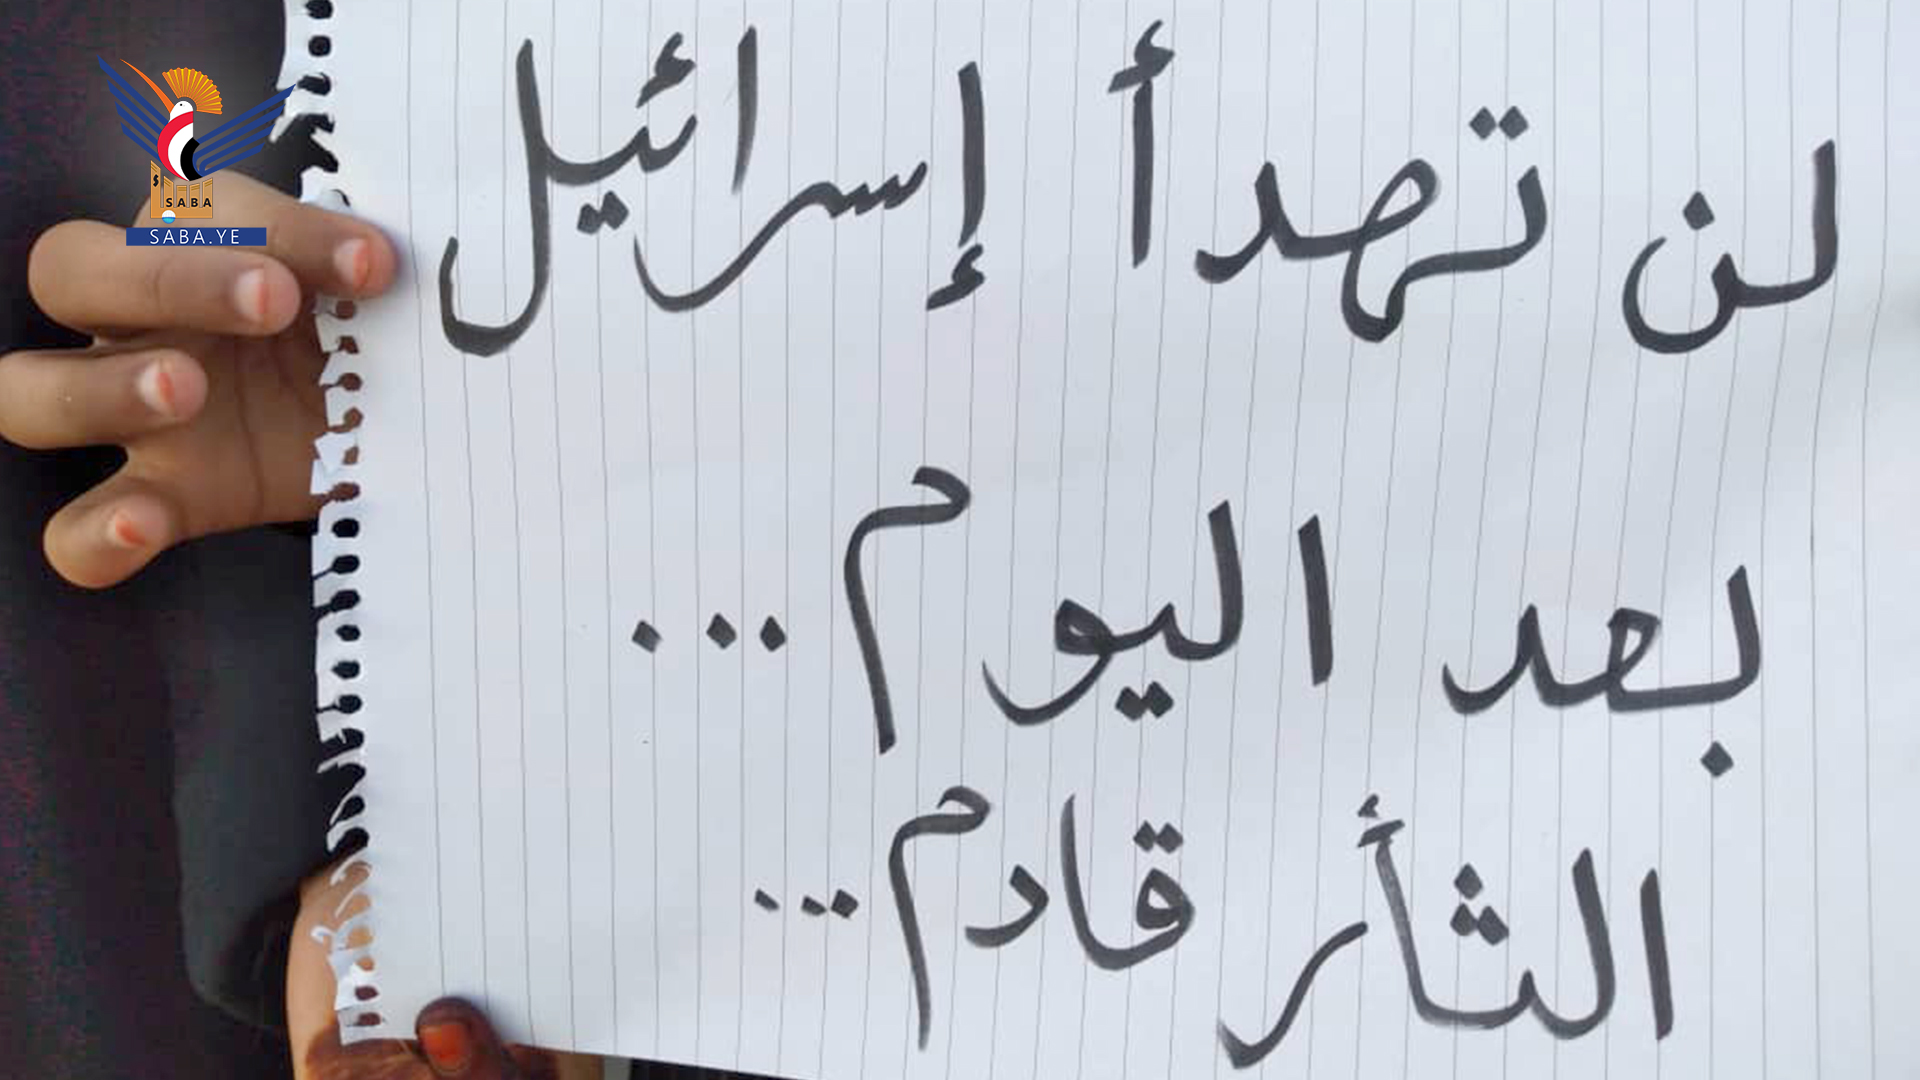 SABA
SABA.YE
لن تهدأ إسرائيل
بعد اليوم...
الثأر قادم...